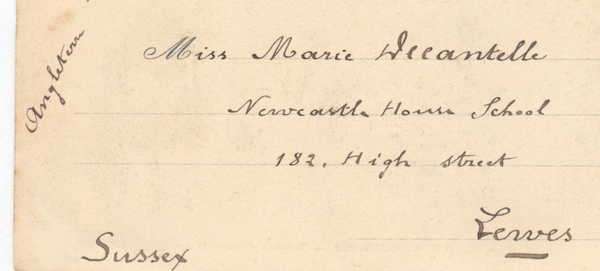 Angleterre
Miss Marie
Newcastle House School
182. High street
Lewes
Sussex